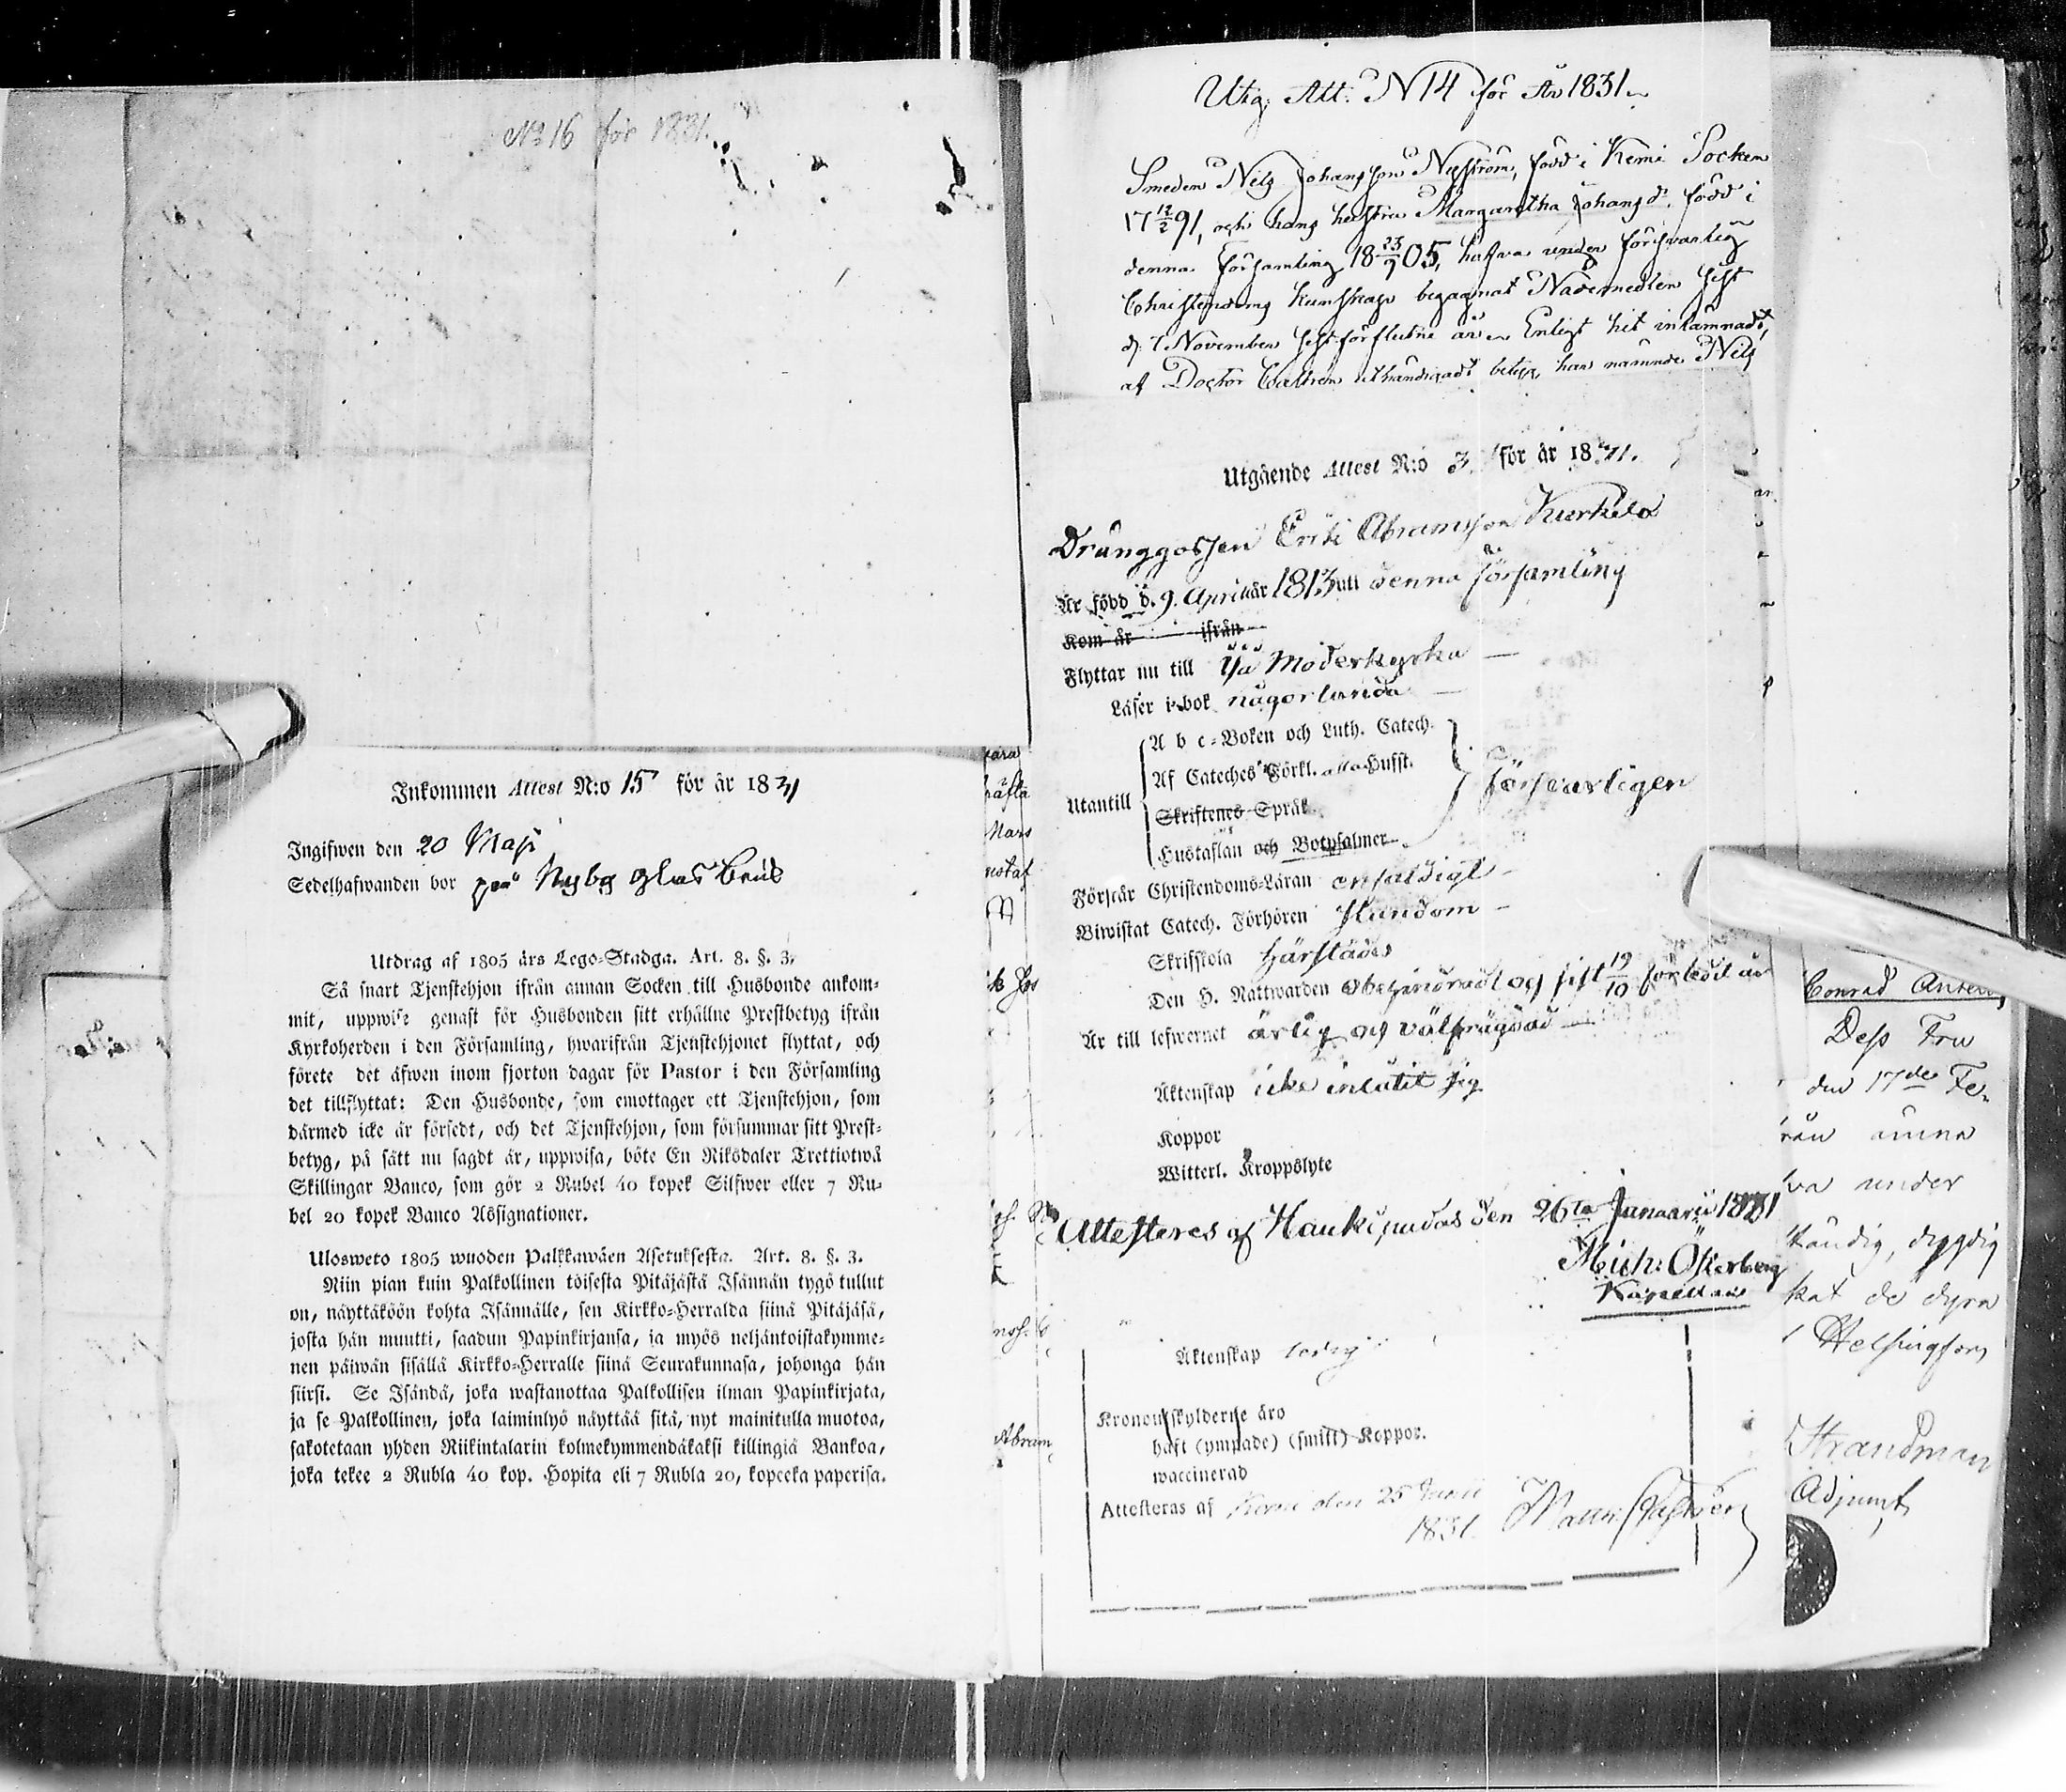 No 16 för 1831.
Inkommen Attest N:o 15 för år 1831
Ingifwen den 20 Maji
Sedelhafwanden bor på Nyby glas bruk
Utdrag af 1805 års Lego-Stadga. Art. 8. §. 3.
Så snart Tjenstehjon ifrån annan Socken till Husbonde ankom-
mit, uppwise genast för Husbonden sitt erhållne Prestbetyg ifrån
Kyrkoherden i den Församling, hwarifrån Tjenstehjonet flyttat, och
förete det äfwen inom fjorton dagar för Pastor i den Församling
det tillflyttat: Den Husbonde, som emottager ett Tjenstehjon, som
därmed icke är försedt, och det Tjenstehjon, som försummar sitt Prest-
betyg, på sätt nu sagdt är, uppwisa, böte En Riksdaler Trettiotwå
Skillingar Banco, som gör 2 Rubel 40 kopek Silfwer eller 7 Ru-
bel 20 kopek Banco Assignationer.
Ulosweto 1805 wuoden Palkkawäen Asetuksesta. Art. 8. §. 3.
Niin pian kuin Palkollinen toisesta Pitäjästä Isännän tygö tullut
on, näyttäköön kohta Isännälle, sen Kirkko-Herralda siinä Pitäjäsä,
josta hän muutti, saadun Papinkirjansa, ja myös neljäntoistakymme-
nen päiwän sisällä Kirkko-Herralle siinä Seurakunnasa, johonga hän
siirsi. Se Isändä, joka wastanottaa Palkollisen ilman Papinkirjata,
ja se Palkollinen, joka laiminlyö näyttää sitä, nyt mainitulla muotoa,
sakotetaan yhden Riikintalarin kolmekymmendäkaksi killingiä Bankoa,
joka tekee 2 Rubla 40 kop. Hopita eli 7 Rubla 20, kopeeka paperisa.
Utg. Att. N 14 för År 1831
Smeden Nils Johansson Nyström, född i Kemi Socken
17 12/2 91, och hans hustru Margaretha Johansd. född i
denna Församling 18 23/9 05, hafva under försvarlig
Christendoms kunskap begagnat Nådemedlen sist
d. 7 November sistförflutne år. Enligt hit inlämnadt,
af Doctor Castren uthändigadt betyg, har nämnde Nils
Utgående Attest N:o 3 för år 1831.
Dränggossen Erik Abramsson Kurkela
Är född d. 9. April år 1813 uti denna församling
Kom år ifrån
Flyttar nu till Ijå Moderkyrka
Läser i bok någorlunda
Utantill
A b c-Boken och Luth. Catech.
Af Cateches Förkl. alla Hufst.
Skriftenes Språk
Hustaflan och Botpsalmer
försvarligen
Förstår Christendoms-Läran enfaldigt
Biwistat Catech. Förhören stundom
Skrifskola härstädes
Den H. Nattwarden obehindradt og sist 19/10 förledit år
Är till lefwernet ärlig og välfrägdad
Äktenskap icke inlåtit sig
Koppor
Witterl. Kroppslyte
Attesteres af Haukipudas den 26ta Januarii 1831
Mich: Österberg
Kapellan
Äktenskap ledig
Kronoutskylderne äro
haft (ympade) (smitt) Koppor.
waccinerad
Attesteras af Kemi den 25 Junii
1831. Matth. Castrén
vara
Mars
Abram
Conrad
Dess Fru
den 17de Fe-
under
ständig, dygdig
kat de dyra
Helsingfors
Strandman
Adjunct